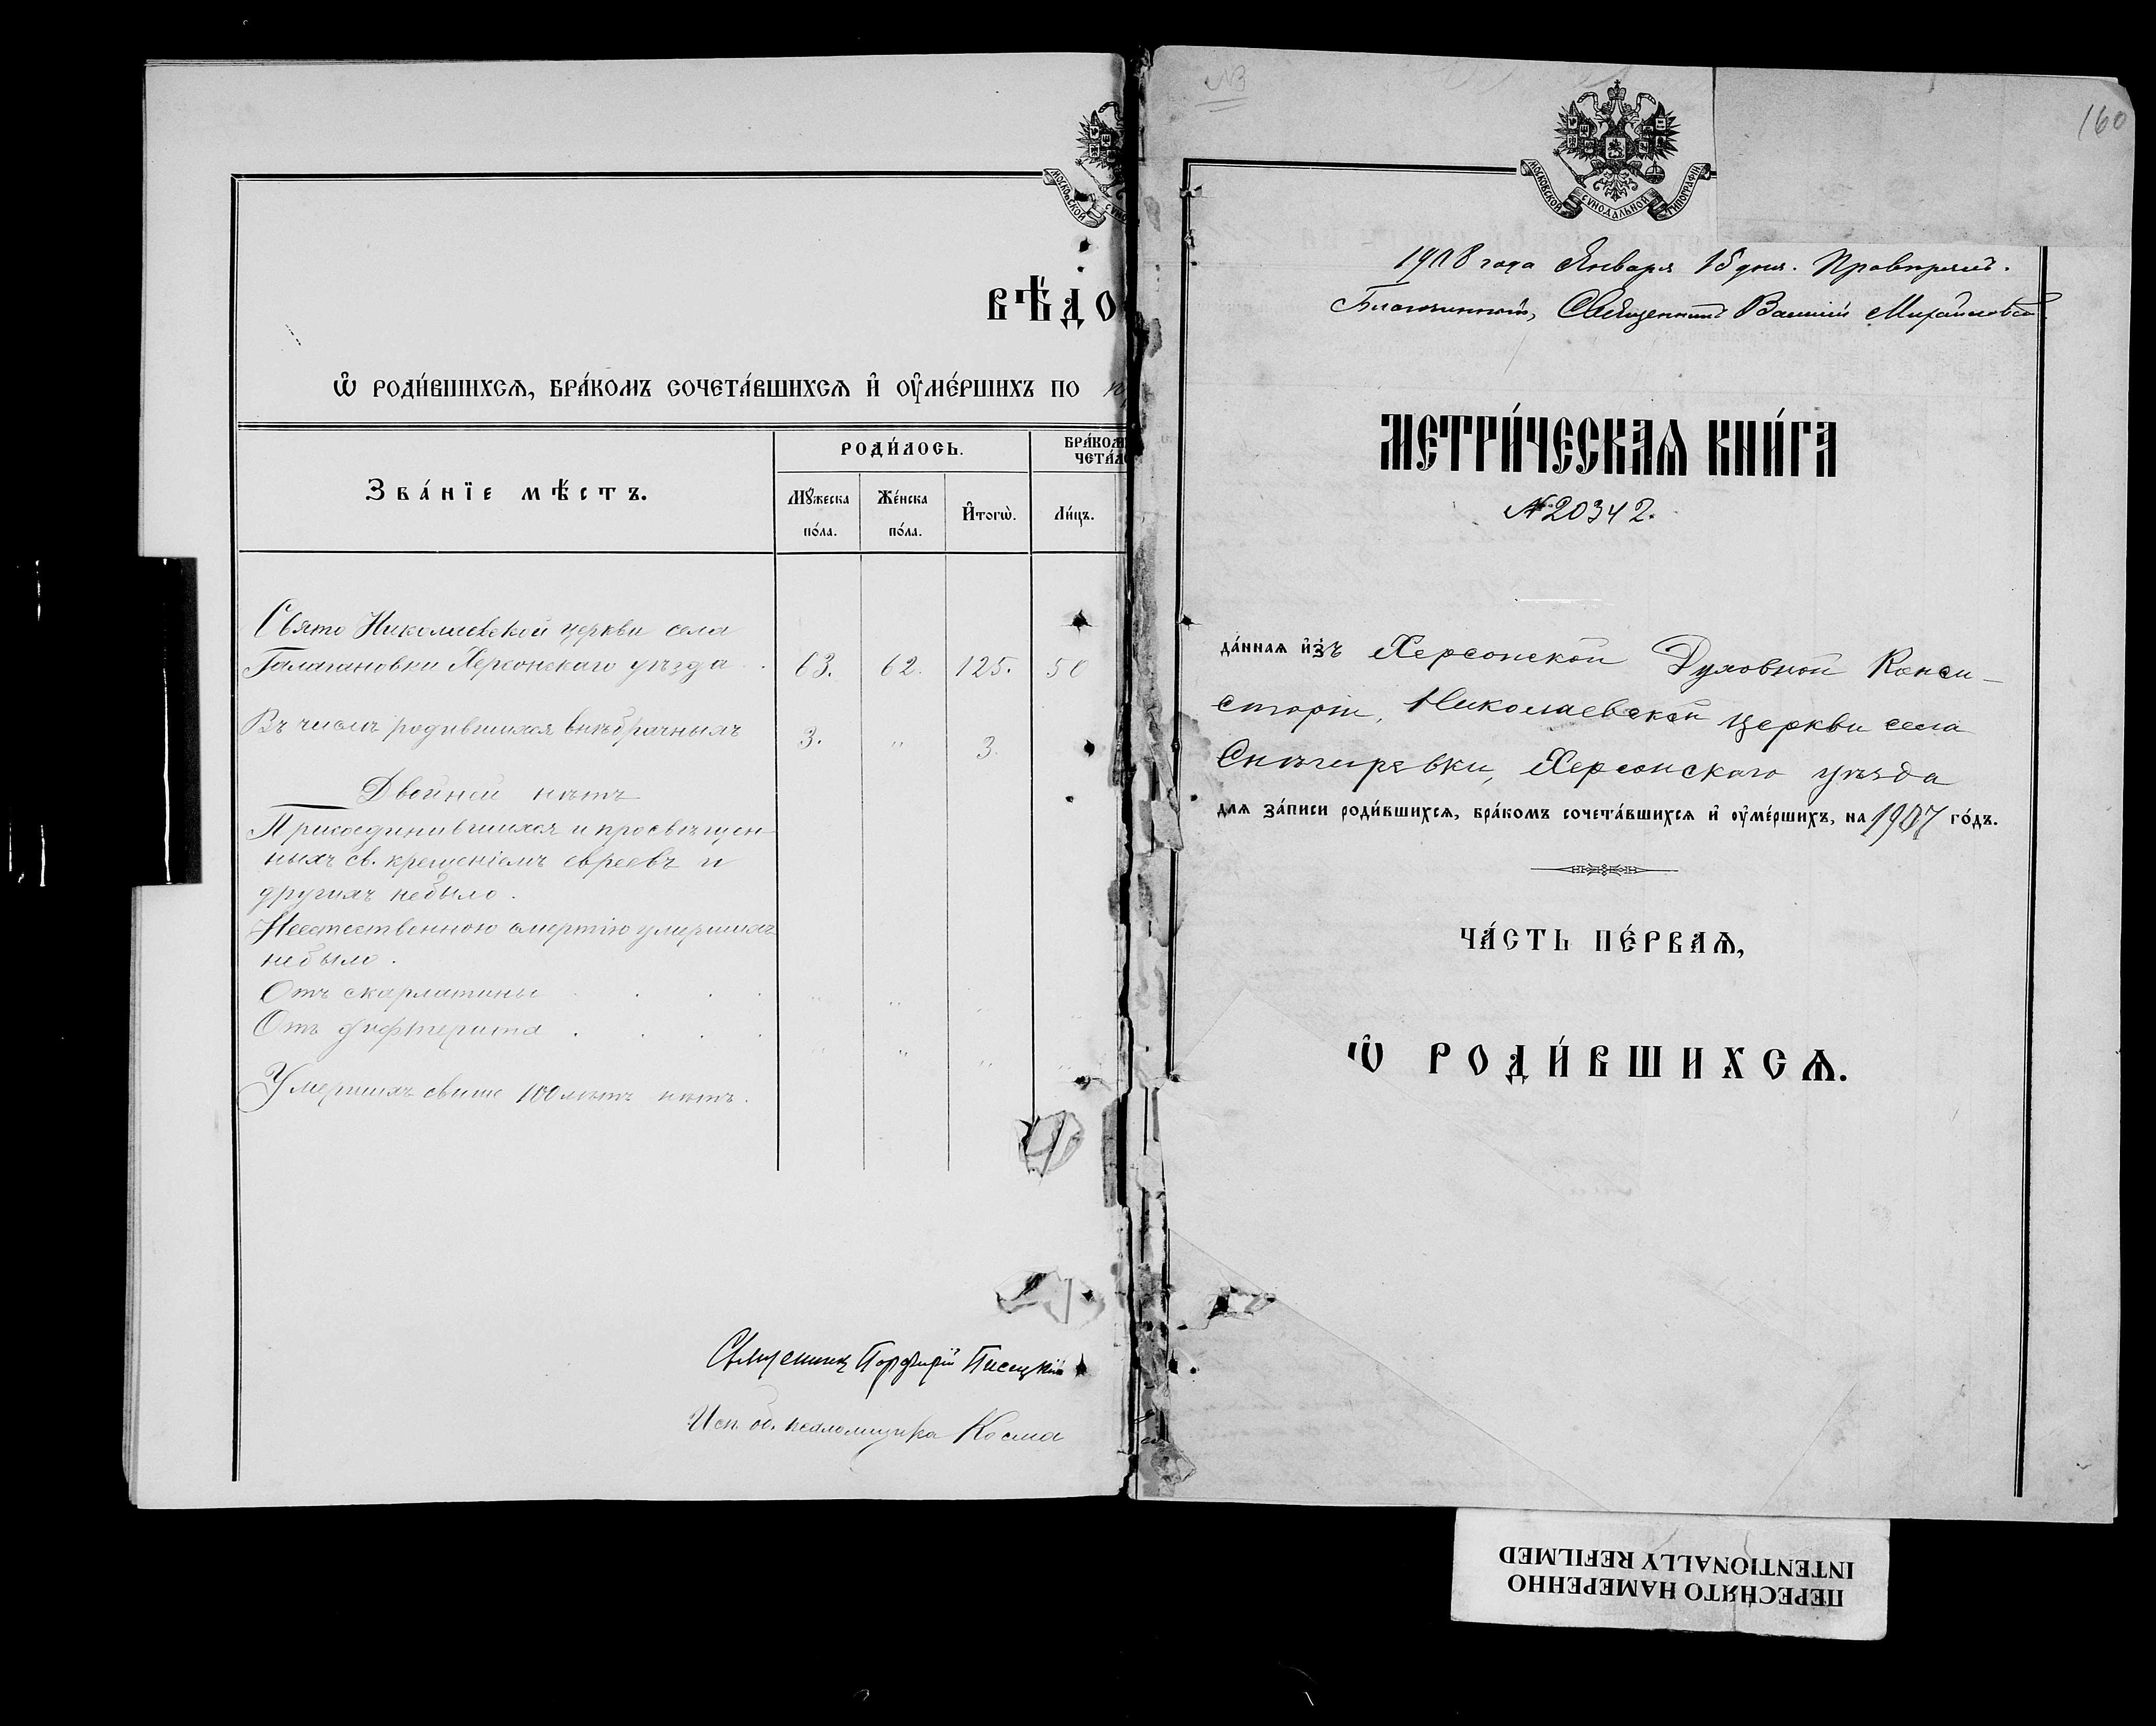 МОСКОВСКОЙ СУНО
ВѢДО
Ѽ РОДИ́ВШИХСѦ, БРА́КОМЪ СОЧЕТА́ВШИХСѦ И҆ ОУ҆МЕ́РШИХЪ ПО
Зва́нїе мѣстъ.
РОДИ́ЛОСЬ.
БРА́КОМ
ЧЕТА́ЛО
Мꙋ́жеска по́ла.
Же́нска по́ла.
И҆тогѡ̀.
Ли́цъ.
Свято Николаевской церкви села
Галагановки Херсонскаго уѣзда . 63. 62. 125. 50
Въ числѣ родившихся внѣбрачныхъ 3. " 3.
Двойней нѣтъ
Присоединившихся и просвѣщен-
ныхъ св. крещеніемъ евреевъ и
другихъ небыло.
Неестественною смертію умершихъ
небыло.
Отъ скарлатины . . . " " " "
Отъ дифтерита . . . . " " " "
Умершихъ свыше 100 лѣтъ нѣтъ.
Священникъ Порфирій Писецкій
Исп. об. псаломщика Косма
№3
160
МОСКОВСКОЙ СУНОДАЛЬНОЙ ТИПОГРАФІИ
1908 года Января 15 дня. Провѣрялъ.
Благочинный, Священникъ Василій Михайловск
МЕТРИ́ЧЕСКАѦ КНИ́ГА
№ 20342.
да́нная и҆зъ Херсонской Духовной Конси-
сторіи, Николаевской церкви села
Снѣгиревки, Херсонскаго уѣзда
для за́писи роди́вшихся, бра́комъ сочета́вшихся и҆ оу҆ме́ршихъ, на 1907 го́дъ.
ЧА́СТЬ ПЕ́РВАѦ,
Ѽ РОДИ́ВШИХСѦ.
ПЕРЕСНЯТО НАМЕРЕННО
INTENTIONALLY REFILMED